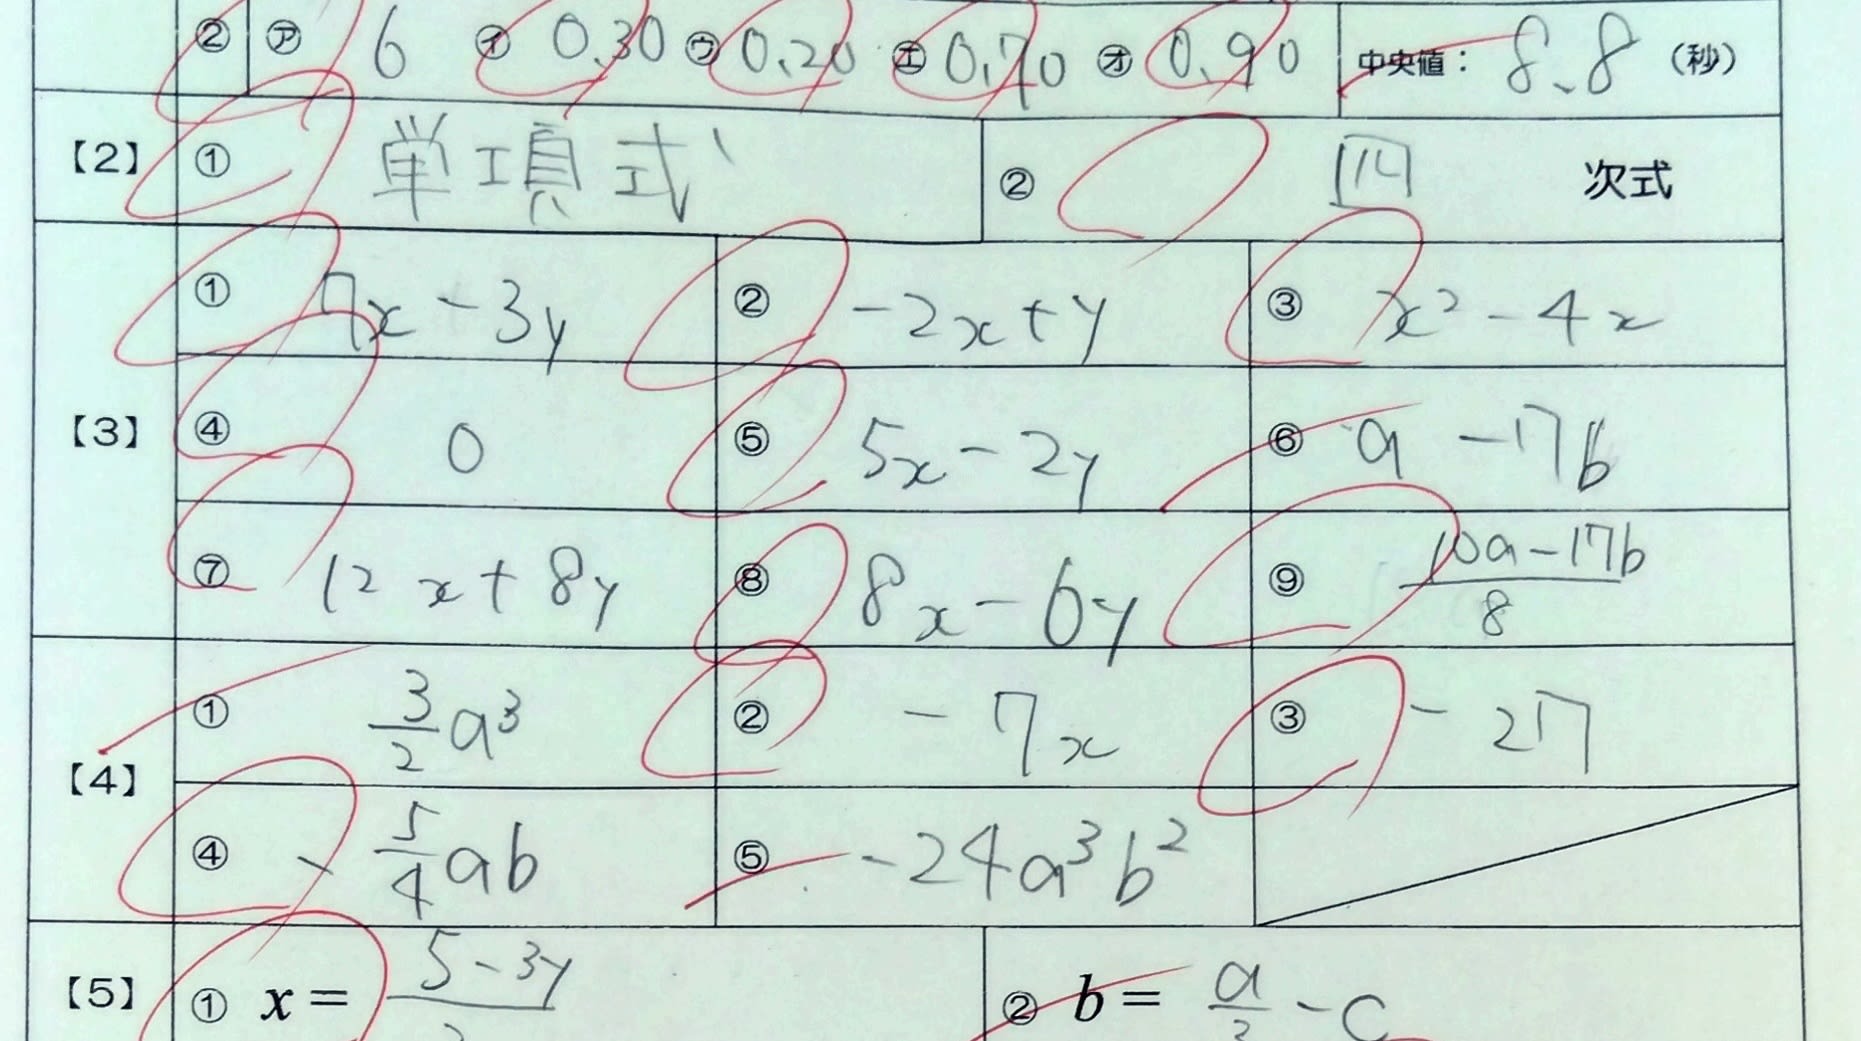 ② ㋐ 6 ㋑ 0.30 ㋒ 0.20 ㋓ 0.70 ㋔ 0.90 中央値： 8.8 （秒）
【2】 ① 単項式 ② 四 次式
【3】 ① 7x - 3y ② -2x+y ③ x² - 4x
④ 0 ⑤ 5x - 2y ⑥ a - 17b
⑦ 12x + 8y ⑧ 8x - 6y ⑨ (10a-17b)/8
【4】 ① 3/2 a³ ② -7x ③ -27
④ - 5/4 ab ⑤ -24a³b²
【5】 ① x = 5-3y ② b = a - c